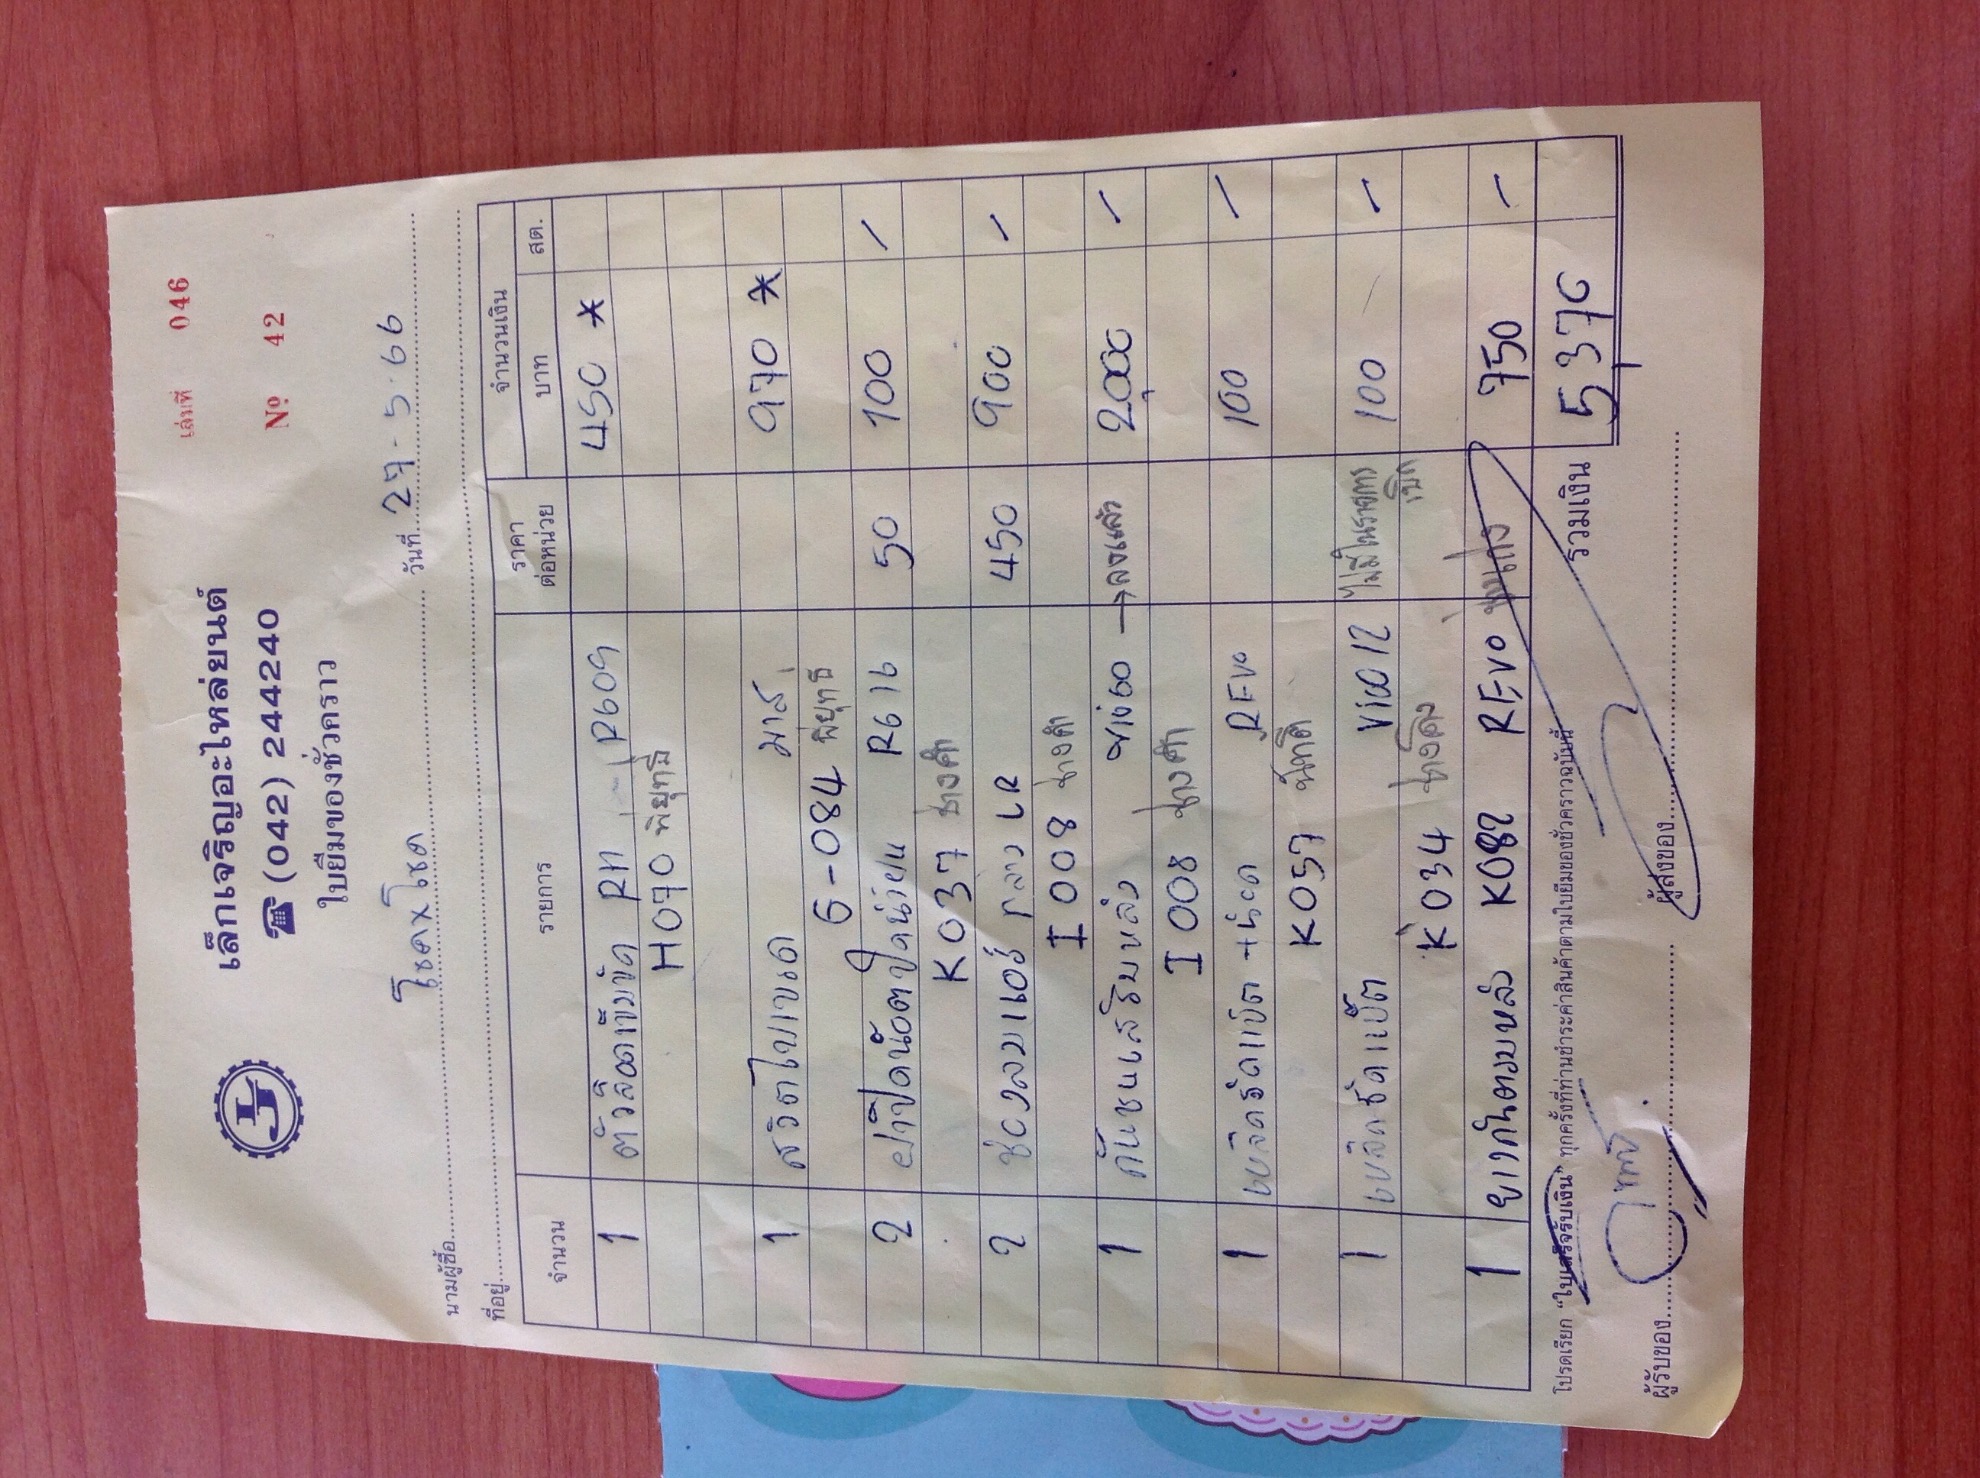 เล่มที่ 046
เล็กเจริญอะไหล่ยนต์
☎ (042) 244240
Nº 42
ใบยืมของชั่วคราว
นามผู้ซื้อ โชคxโชค วันที่ 27-5-66
ที่อยู่
จำนวน รายการ ราคาต่อหน่วย จำนวนเงิน
บาท สต.
1 ตัวล็อดเข็มขัด RH R609 450 *
H070 พี่ยุทธิ์
1 สวิตไบเขนด มาส์ 970 *
6-084 พี่ยุทธิ์
2 ฝาปิดน้อตปัดน้ำฝน R616 50 100 /
K037 ช่างศึก
2 ช่องลมแอร์ กลาง LR 450 900 /
I008 ช่างศึก
1 กันชนเสริมหลัง vigo → ลงแล้ว 2,000 /
I008 ช่างศึก
1 เหล็กรัดแบ็ต +น็อต REVO 100 /
K057
1 เหล็กรัดแบ็ต VIGO 12 ไม่มีในรายการเบิก 100 /
K034
1 ยางกันตมหลัง K082 REVO 750 /
โปรดเรียก “ใบเสร็จรับเงิน” ทุกครั้งที่ท่านชำระค่าสินค้าตามใบยืมของชั่วคราวฉบับนี้ รวมเงิน 5,370
ผู้รับของ ผู้ส่งของ